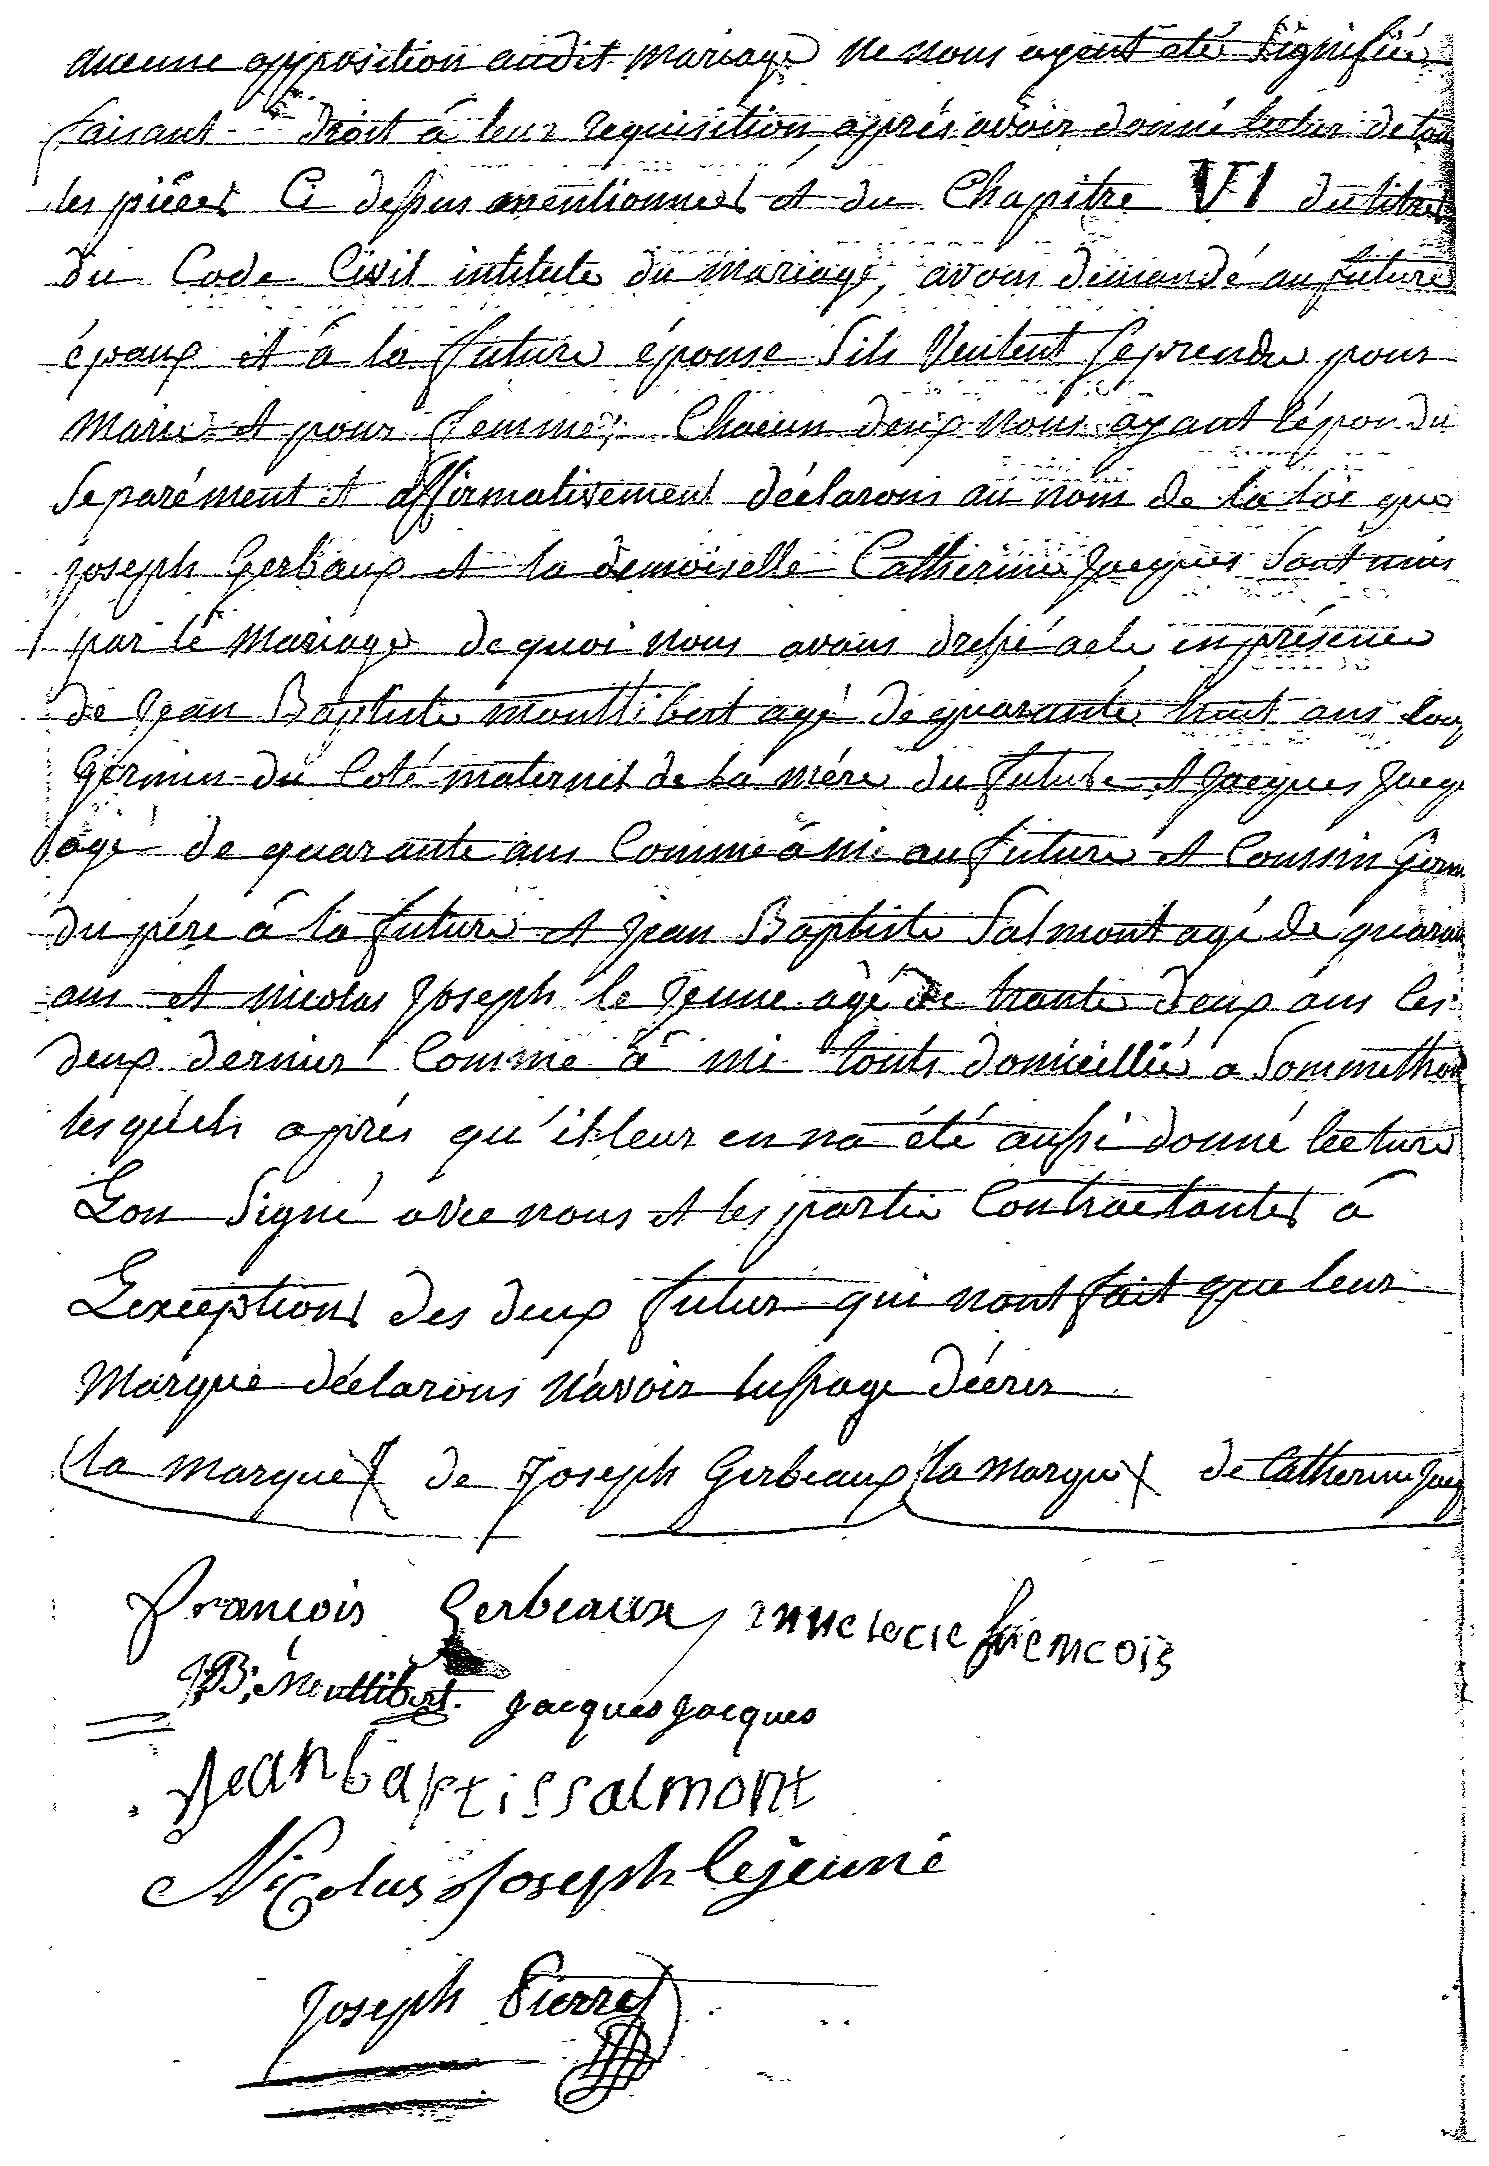 aucune opposition audit mariage ne nous ayent eté Signifiée
faisant droit á leur requisition, aprés avoir donné lectur de tou
les piéces Ci dessus mentionnees et du Chapitre VI du titre
du Code Civil intitule du mariage, avons demandé au future
époaux et á la future épouse Sils Veulent se prendre pour
Marie et pour femme, Chacun deux nous ayant répondu
Separément et affirmativement déclarons au nom de la loi que
joseph Gerbaux et la demoiselle Catherine Jacques Sont unis
par le Mariage de quoi nous avons dressé acte en présence
de Jean Baptiste moultibert agé de quarante huit ans Couz
Germin du Coté maternel de la mére du future et Jacques Jacq
agé de quarante ans Comme á mi au future et Coussin germ
du pére á la future et jean Baptiste Salmont agé de quaran
ans et nicolas Joseph le jeune agé de trante deux ans les
deux dernier Comme á mi touts domicillié a Sommethon
les quels aprés qu'il leur en na été aussi donné lecture
Lon Signé avec nous et les partie Contractantes á
Lexception des deux futur qui nont fait que leur
Marque déclarons n'avoir lussage décrir
la marque X de Joseph Gerbeaux la marque X de Catherine Jacq
françois Gerbeaux françois
J. B. Moultibert. Jacques jacques
Jean baptis salmont
Nicolas Joseph lejeune
Joseph Pierret